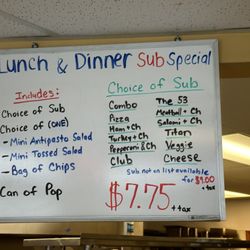 Lunch & Dinner Sub Special
Includes:
Choice of Sub
Choice of (ONE)
- Mini Antipasto Salad
- Mini Tossed Salad
- Bag of Chips
Can of Pop
Choice of Sub
Combo
Pizza
Ham + Ch
Turkey + Ch
Pepperoni & Ch
Club
The 53
Meatball + Ch
Salami + Ch
Titan
Veggie
Cheese
Sub not on list available
for $9.00
+ tax
$7.75
+ tax